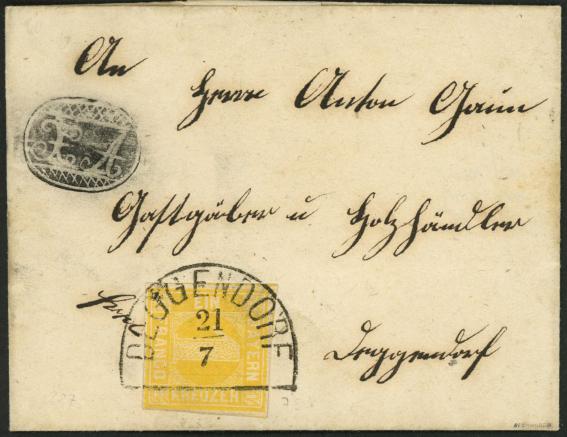 An
Herrn Anton Gaim
Gastgäber u Holzhändler
DEGGENDORF
21
7
EIN
BAYERN
FRANCO
KREUZER
1
Deggendorf